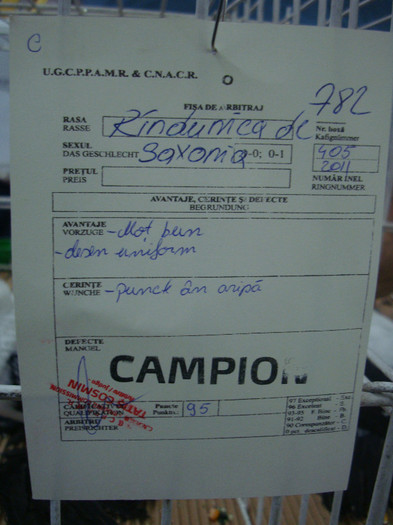 C
U.G.C.P.P.A.M.R. & C.N.A.C.R.
FIȘA DE ARBITRAJ
782
RASA
RASSE
Rîndunica de
Nr. boxă
Kafignummer
SEXUL
DAS GESCHLECHT
Saxonia
0-0; 0-1
405
2011
PREȚUL
PREIS
NUMĂR INEL
RINGNUMMER
AVANTAJE, CERINȚE ȘI DEFECTE
BEGRUNDUNG
AVANTAJE
VORZUGE
- Moț bun
- desen uniform
CERINȚE
WUNCHE
- punct în aripă
DEFECTE
MANGEL
CAMPION
CALIFICATIV
QUALIFICATION
Puncte
Punkte
95
ARBITRU
PREISRICHTER
97 Exceptional
96 Excelent